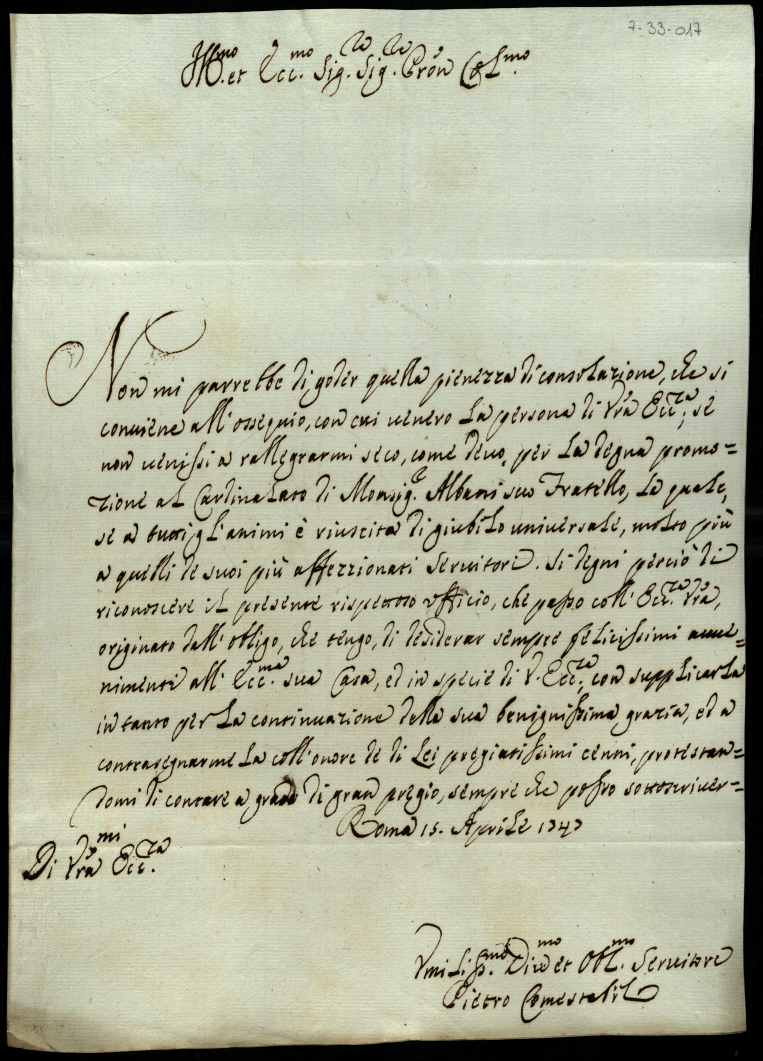 7-33-017
Ill.mo et Ecc.mo Sig.re Sig.re Prōn Col.mo
Non mi parrebbe di goder quella pienezza di consolazione, che si
conviene all'ossequio, con cui venero la persona di Vr̄a Ecc.za, se
non venissi a rallegrarmi seco, come devo, per la degna promo=
zione al Cardinalato di Monsig.r Albani suo Fratello, la quale,
se a tutti gl'animi è riuscita di giubilo universale, molto più
a quelli de suoi più affezzionati Servitori. Si degni perciò di
riconoscere il presente rispettoso ufficio, che passo coll'Ecc.za Vr̄a,
originato dall'obligo, che tengo, di desiderar sempre felicissimi avve=
nimenti all'Ecc.ma sua Casa, ed in specie di V. Ecc.za, con supplicarla
in tanto per la continuazione della sua benignissima grazia, ed a
contrasegnarmela coll'onore de di Lei pregiatissimi cenni, protestan=
domi di contare a grado di gran pregio, sempre che posso sottoscriver=
mi
Roma 15. Aprile 1747
Di Vr̄a Ecc.za
Umiliss.mo Div.mo et Obl.mo Servitore
Pietro Comestabil